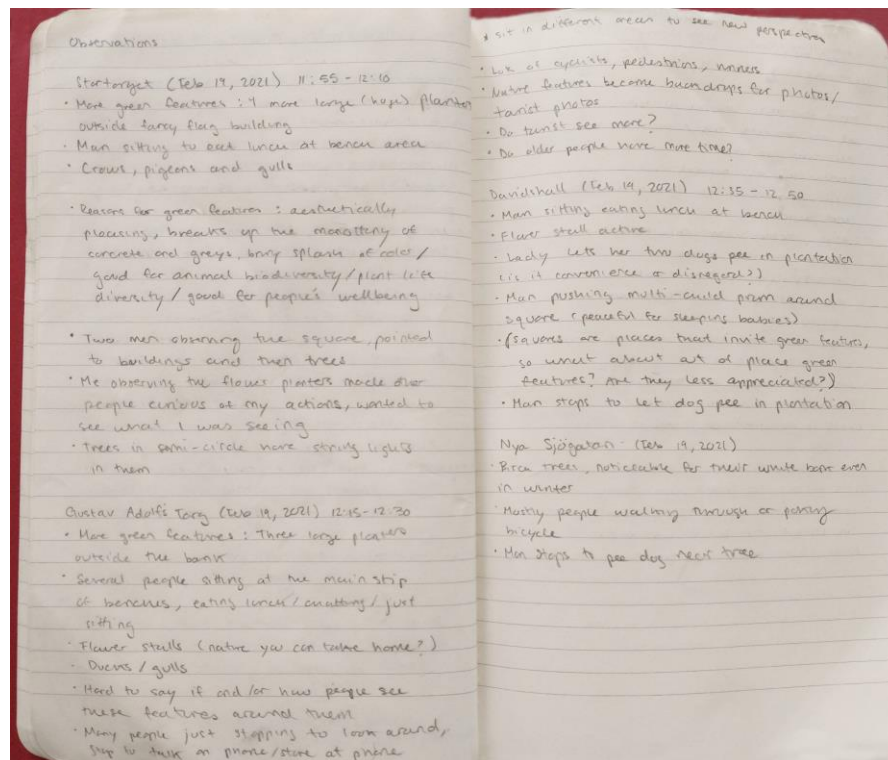 Observations
Stortorget (Feb 19, 2021) 11:55 - 12:10
• More green features : 4 more large (huge) planters
outside fancy flag building
• Man sitting to eat lunch at bench area
• Crows, pigeons and gulls
• Reasons for green features : aesthetically
pleasing, breaks up the monotony of
concrete and greys, bring splash of color /
good for animal biodiversity / plant life
diversity / good for people's wellbeing
• Two men observing the square, pointed
to buildings and then trees
• Me observing the flower planters made other
people curious of my actions, wanted to
see what I was seeing
• Trees in semi-circle have string lights
in them
Gustav Adolfs Torg (Feb 19, 2021) 12:15-12:30
• More green features : Three large planters
outside the bank
• Several people sitting at the main strip
of benches, eating lunch / chatting / just
sitting
• Flower stalls (nature you can take home?)
• Ducks / gulls
• Hard to say if and/or how people see
these features around them
• Many people just stopping to look around,
stop to talk on phone/stare at phone
* sit in different areas to see new perspectives
• Lots of cyclists, pedestrians, runners
• Nature features become backdrops for photos/
tourist photos
• Do tourist see more?
• Do older people have more time?
Davidshall (Feb 19, 2021) 12:35 - 12:50
• Man sitting eating lunch at bench
• Flower stall active
• Lady lets her two dogs pee in plantation
(is it convenience or disregard?)
• Man pushing multi-child pram around
square (peaceful for sleeping babies)
• (Squares are places that invite green features,
so what about out of place green
features? Are they less appreciated?)
• Man stops to let dog pee in plantation
Nya Sjögatan - (Feb 19, 2021)
• Birch trees, noticeable for their white bark even
in winter
• Mostly people walking through or parking
bicycle
• Man stops to pee dog near tree